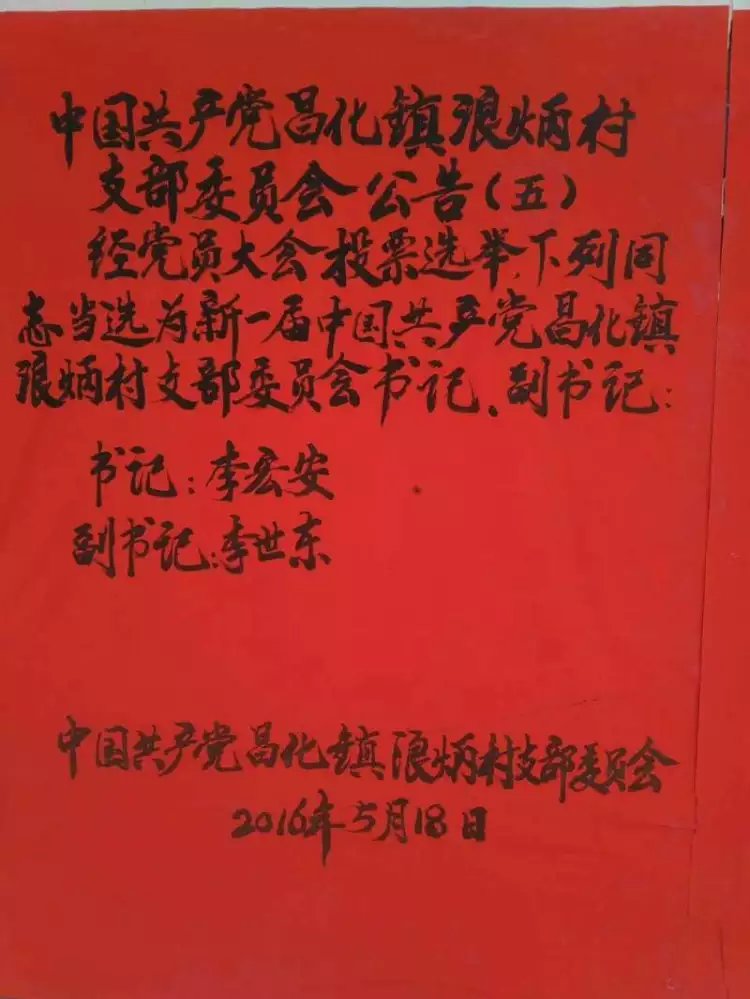 中国共产党昌化镇浪炳村
支部委员会公告(五)
经党员大会投票选举,下列同
志当选为新一届中国共产党昌化镇
浪炳村支部委员会书记、副书记:
书记:李宏安
副书记:李世东
中国共产党昌化镇浪炳村支部委员会
2016年5月18日